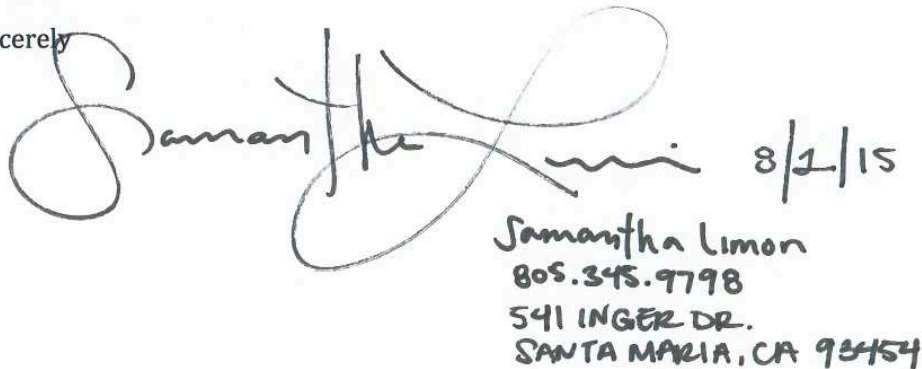 cerely
Samantha Limon 8/1/15
Samantha Limon
805.345.9798
541 INGER DR.
SANTA MARIA, CA 93454